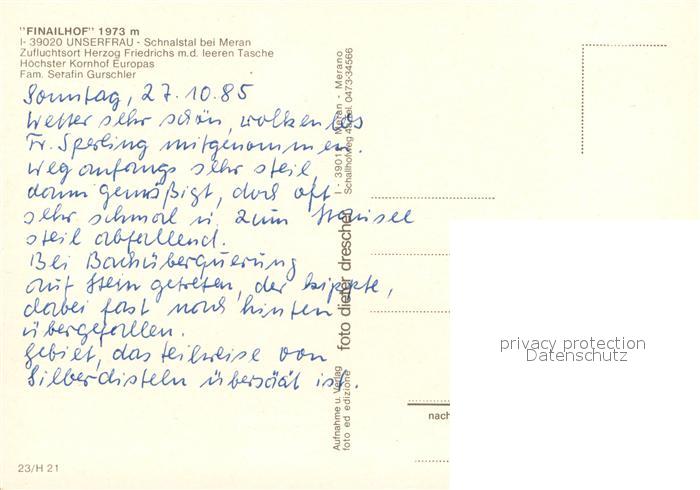 "FINAILHOF" 1973 m
I- 39020 UNSERFRAU - Schnalstal bei Meran
Zufluchtsort Herzog Friedrichs m.d. leeren Tasche
Höchster Kornhof Europas
Fam. Serafin Gurschler
Sonntag, 27.10.85
Wetter sehr schön, wolkenlos
Fr. Sperling mitgenommen.
Weg anfangs sehr steil,
dann gemäßigt, doch oft
sehr schmal u. zum Stausee
steil abfallend.
Bei Bachüberquerung
auf Stein getreten, der kippte,
dabei fast nach hinten
übergefallen.
Gebiet, das teilweise von
Silberdisteln übersäät ist.
Aufnahme u. Verlag
foto ed edizione
foto dieter drescher
I - 39012 Meran - Merano
Schallhofweg Tel. 0473-34566
nach
privacy protection
Datenschutz
23/H 21